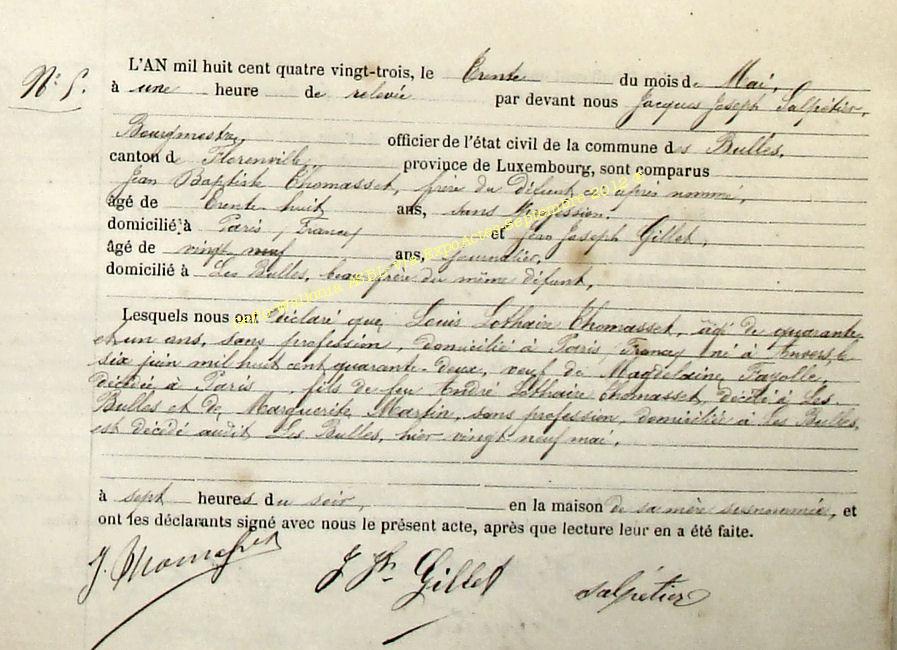 N° 5.
L'AN mil huit cent quatre vingt-trois, le trente du mois de Mai,
à une heure de relevée par devant nous Jacques Joseph Salpétier,
Bourgmestre, officier de l'état civil de la commune des Bulles,
canton de Florenville, province de Luxembourg, sont comparus
Jean Baptiste Thomasset, frère du défunt ci après nommé,
âgé de trente huit ans, sans profession,
domicilié à Paris (France) et Jean Joseph Gillet,
âgé de vingt neuf ans, journalier,
domicilié à Les Bulles, beau frère du même défunt,
Lesquels nous ont déclaré que Louis Lothaire Thomasset, âgé de quarante
et un ans, sans profession, domicilié à Paris (France) né à Anvers, le
six juin mil huit cent quarante-deux, veuf de Magdelaine Fayolle,
décédée à Paris, fils de feu André Lothaire Thomasset, décédé à Les
Bulles et de Marguerite Martin, sans profession, domiciliée à Les Bulles,
est décédé audit Les Bulles, hier vingt neuf mai,
à sept heures du soir, en la maison de sa mère susnommée, et
ont les déclarants signé avec nous le présent acte, après que lecture leur en a été faite.
J. Thomasset J Jh Gillet Salpétier
ExpoActes Septembre 2012